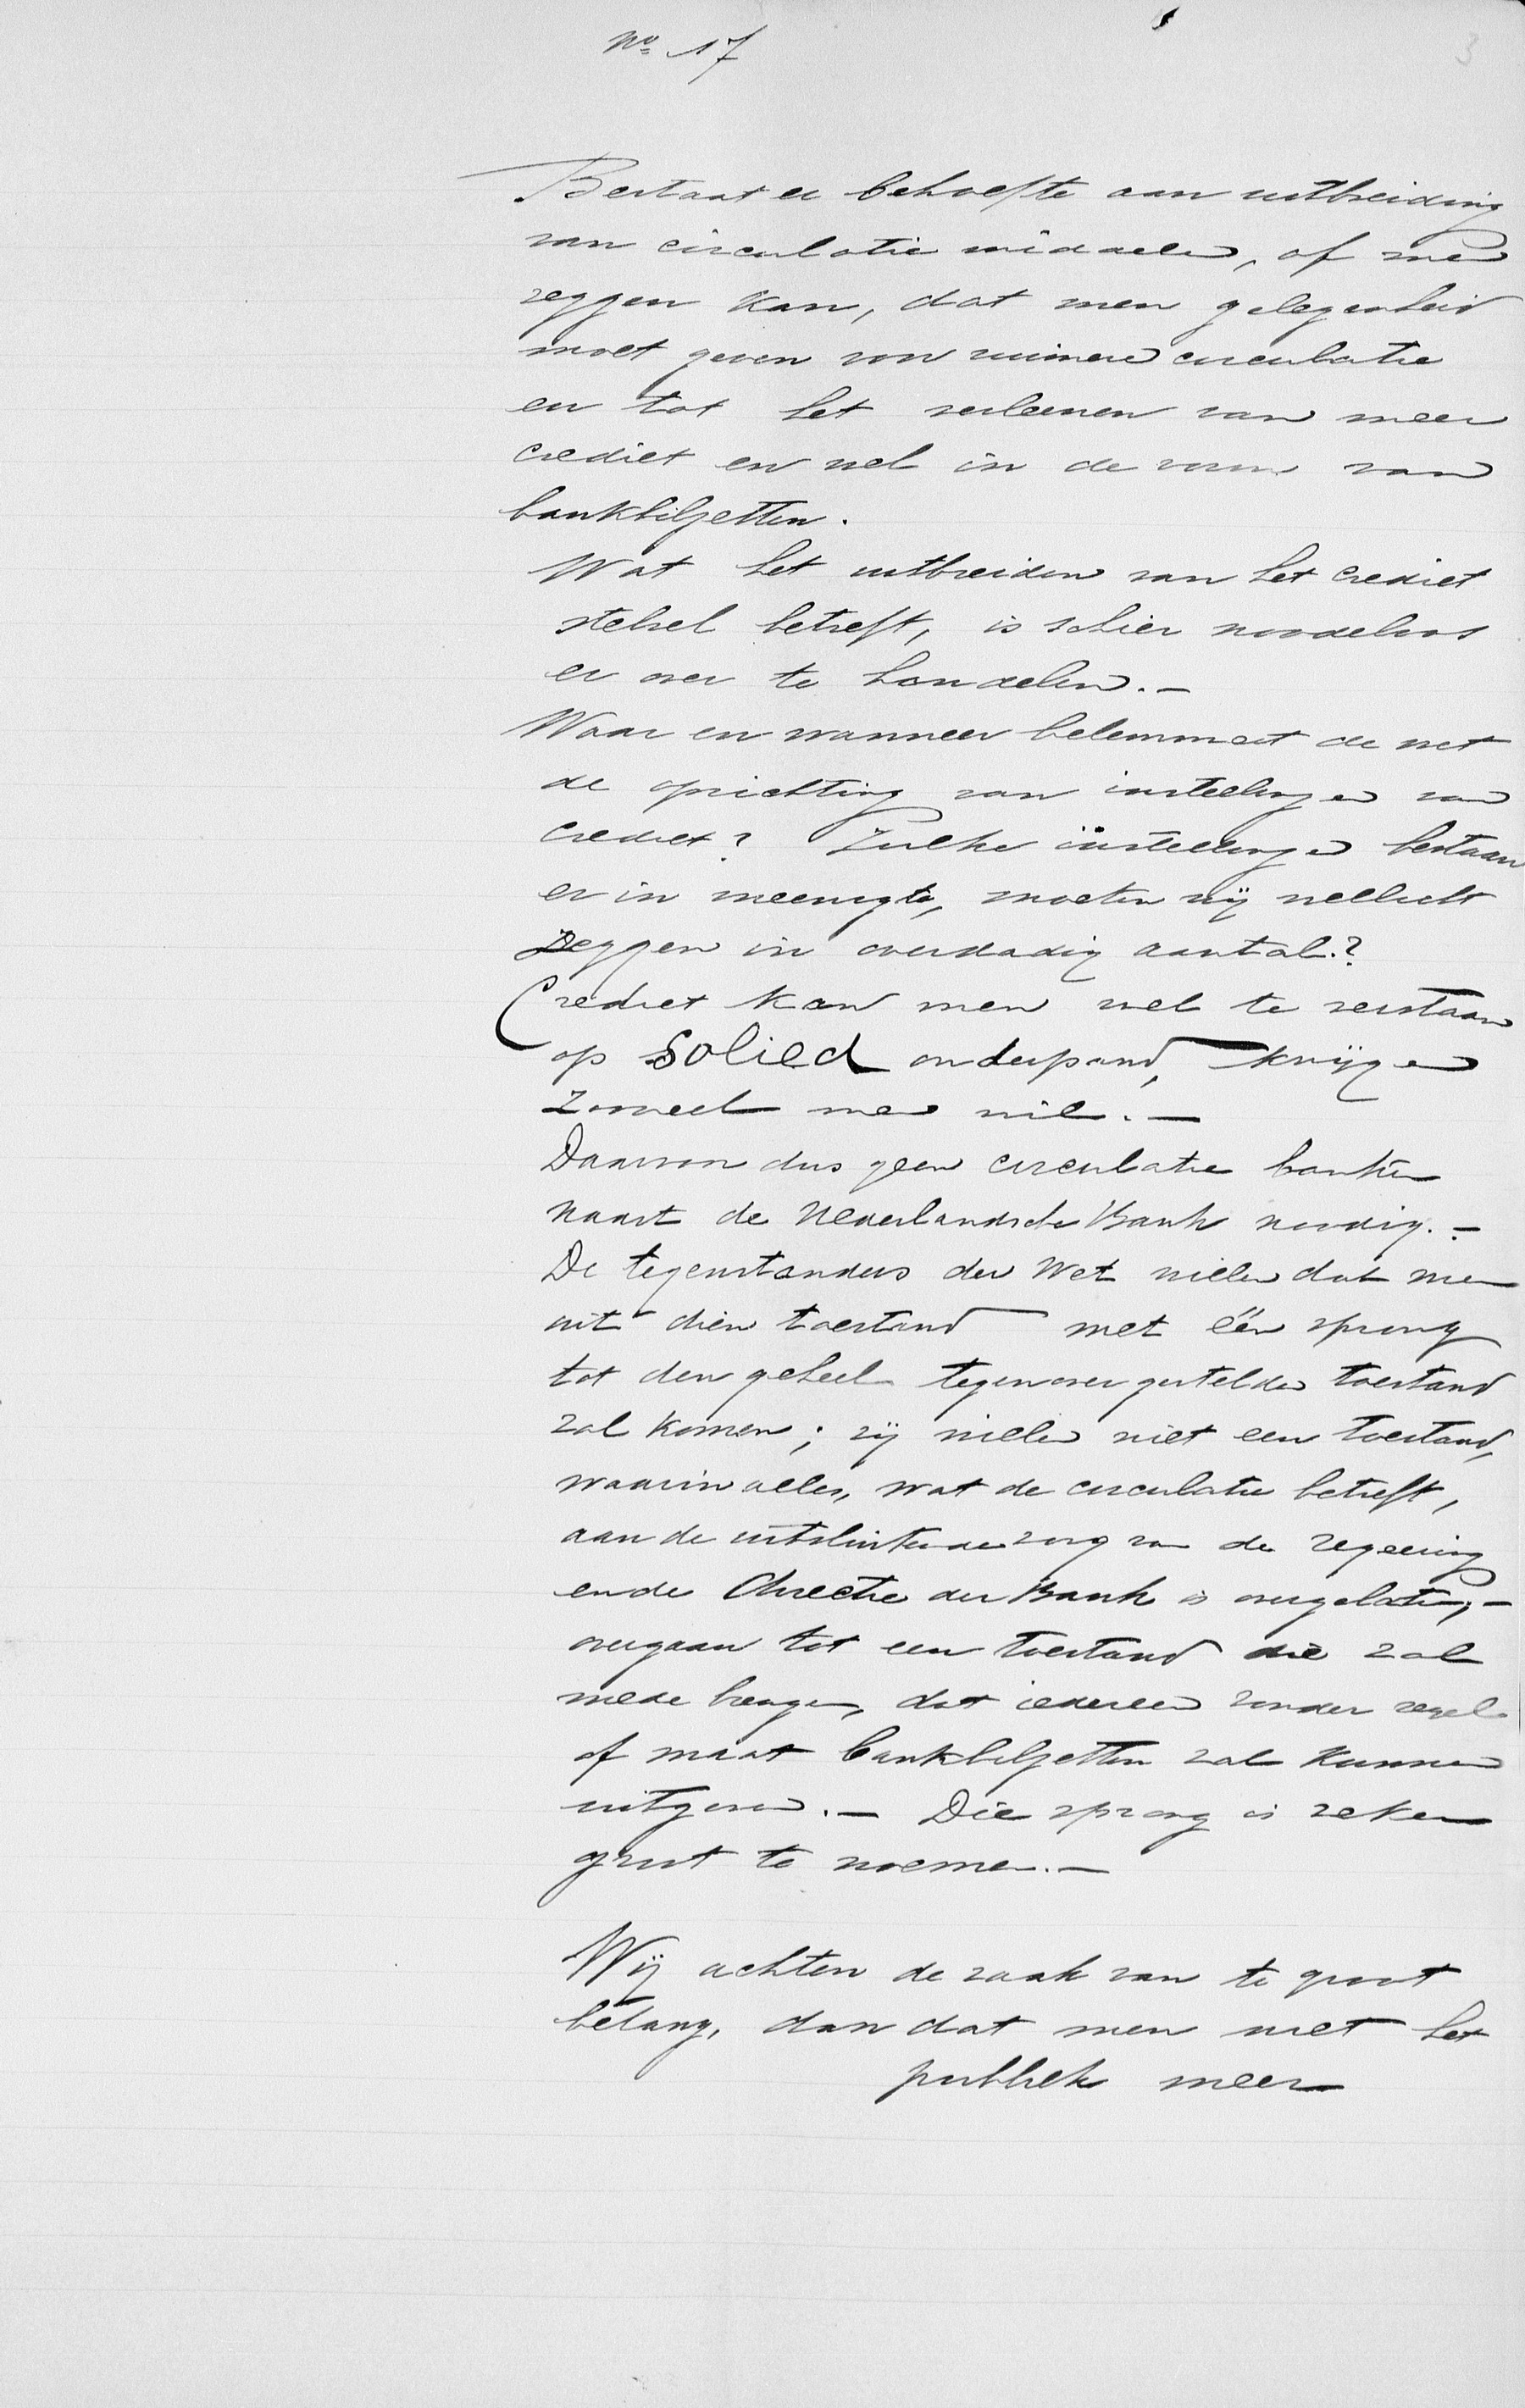 No. 17
3
Bestaat er behoefte aan uitbreiding
van circulatie middelen, of men
zeggen kan, dat men gelegenheid
moet geven van ruimere circulatie
en tot het verleenen van meer
crediet en wel in de vorm van
bankbiljetten.
Wat het uitbreiden van het crediet
stelsel betreft, is schier noodeloos
er over te handelen.—
Waar en wanneer belemmert de wet
de oprichting van instellingen van
crediet? Zulke instellingen bestaan
er in meenigte, moeten wij wellicht
zeggen in overdadig aantal.?
Crediet kan men wel te verstaan
op solied onderpand, krijgen
zooveel men wil.—
Daarvan dus geen circulatie banken
naast de Nederlandsche Bank noodig.—
De tegenstanders der Wet willen dat men
uit dien toestand met één sprong
tot den geheel tegenover gestelden toestand
zal komen; wij willen niet een toestand,
waarin alles, wat de circulatie betreft,
aan de uitsluitende zorg van de regeering
en de Directie der Bank is overgelaten,—
overgaan tot een toestand die zal
mede brengen, dat iedereen zonder regel
of maat bankbiljetten zal kunnen
uitgeven.— Die sprong is zeker
groot te noemen.—
Wij achten de zaak van te groot
belang, dan dat men met het
publiek meer